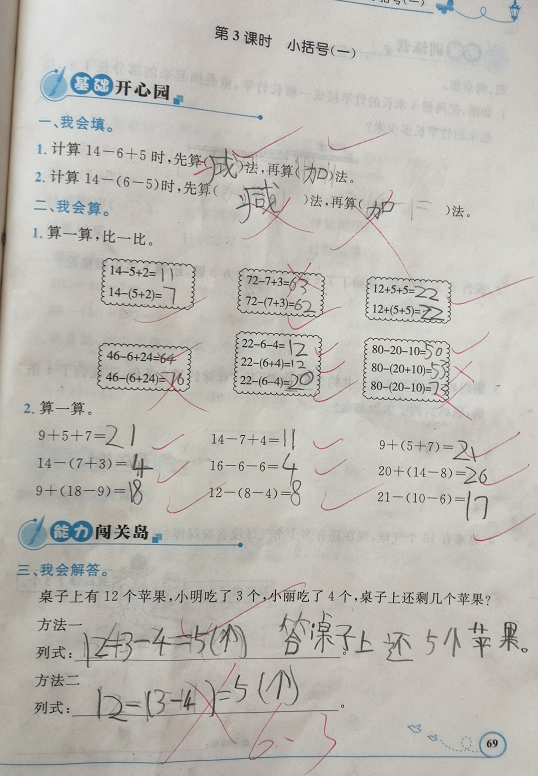 第3课时 小括号(一)
基础 开心园
一、我会填。
1. 计算14-6+5时,先算(减)法,再算(加)法。
2. 计算14-(6-5)时,先算( 减 )法,再算( 加 )法。
二、我会算。
1. 算一算,比一比。
14-5+2=11 72-7+3=63 12+5+5=22
14-(5+2)=7 72-(7+3)=62 12+(5+5)=22
46-6+24=64 22-6-4=12 80-20-10=50
46-(6+24)=76 22-(6+4)=12 80-(20+10)=53
22-(6-4)=20 80-(20-10)=73
2. 算一算。
9+5+7=21 14-7+4=11 9+(5+7)=21
14-(7+3)=4 16-6-6=4 20+(14-8)=26
9+(18-9)=18 12-(8-4)=8 21-(10-6)=17
能力 闯关岛
三、我会解答。
桌子上有12个苹果,小明吃了3个,小丽吃了4个,桌子上还剩几个苹果?
方法一
列式:12+3-4=5(个)。 答桌子上还5个苹果。
方法二
列式:12-(3-4)=5(个)。
6-3
69